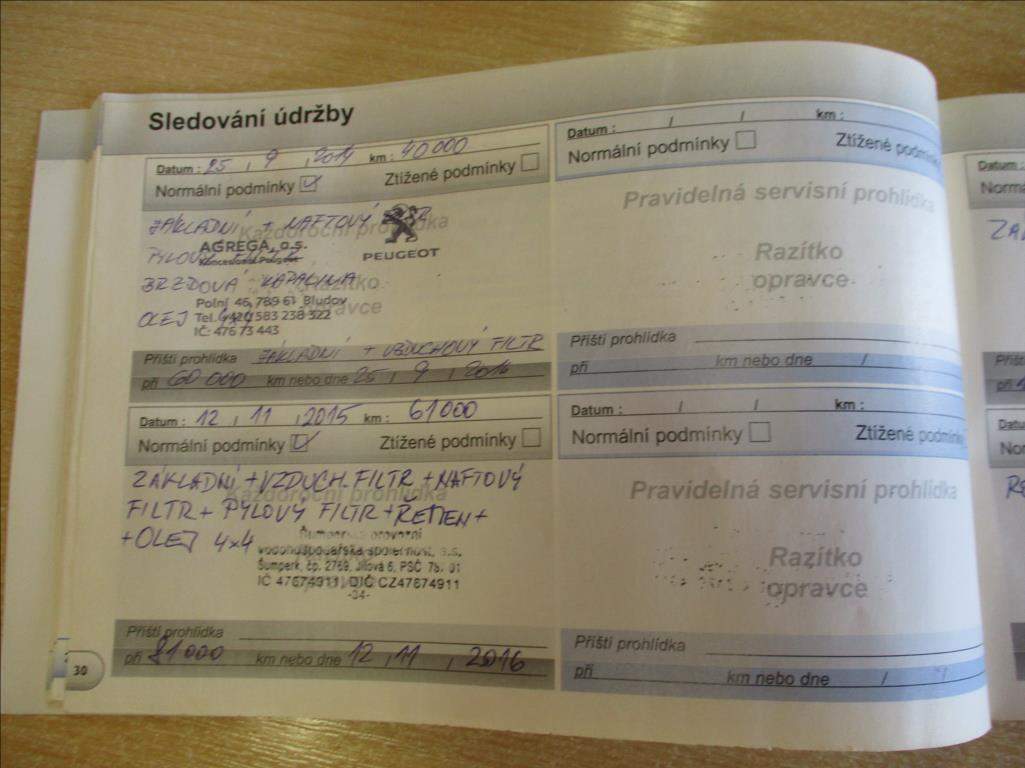 Sledování údržby
Datum : 25 , 9 , 2014 km : 40 000
Normální podmínky Ztížené podmínky
Každoroční prohlídka
ZÁKLADNÍ + NAFTOVÝ
AGREGA, a.s.
PEUGEOT
PYLOVÝ
Razítko
BRZDOVÁ KAPALINA
Polní 46, 789 61 Bludov
opravce
OLEJ 4x4
Tel. +420 583 238 322
IČ: 476 73 443
Příští prohlídka ZÁKLADNÍ + VZDUCHOVÝ FILTR
při 60 000 km nebo dne 25 , 9 , 2016
Datum : 12 , 11 , 2015 km : 61 000
Normální podmínky Ztížené podmínky
Každoroční prohlídka
ZÁKLADNÍ + VZDUCH. FILTR + NAFTOVÝ
FILTR + PYLOVÝ FILTR +
+ OLEJ 4x4
vodohospodářská společnost, a.s.
Šumperk, čp. 2769, Jílová 6, PSČ
IČ 47674911, DIČ CZ47674911
-34-
Příští prohlídka
při 81 000 km nebo dne 12 , 11 , 2016
30
Datum : / / km :
Normální podmínky Ztížené podmínk
Pravidelná servisní prohlídka
Razítko
opravce
Příští prohlídka
při km nebo dne /
Datum : / / km :
Normální podmínky Ztížené podmínk
Pravidelná servisní prohlídka
Razítko
opravce
Příští prohlídka
při km nebo dne /